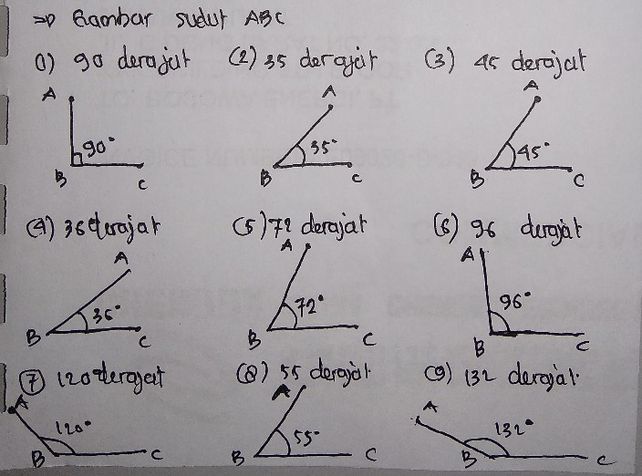 => Gambar sudut ABC
(1) 90 derajat (2) 35 derajat (3) 45 derajat
A A A
90° 35° 45°
B C B C B C
(4) 36 derajat (5) 72 derajat (6) 96 derajat
A A A
36° 72° 96°
B C B C B C
(7) 120 derajat (8) 55 derajat (9) 132 derajat
A A A
120° 55° 132°
B C B C B C